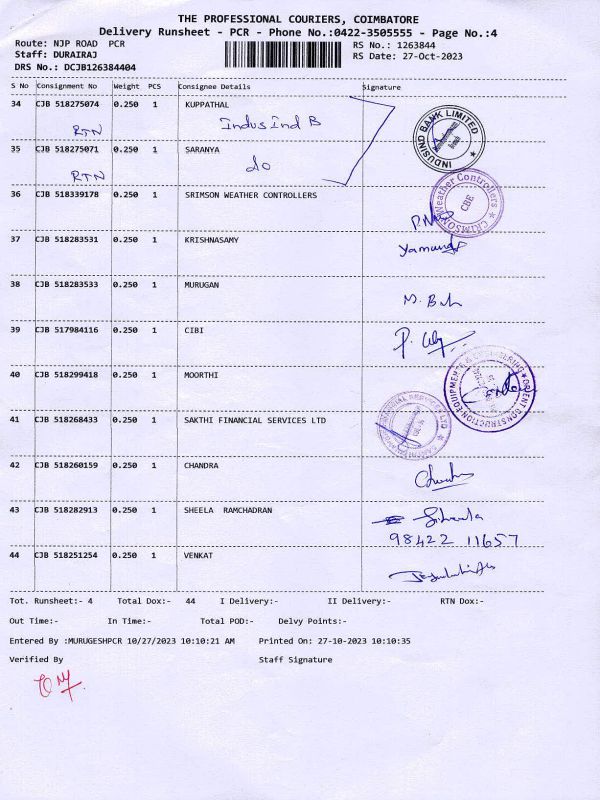 THE PROFESSIONAL COURIERS, COIMBATORE
Delivery Runsheet - PCR - Phone No.:0422-3505555 - Page No.:4
Route: NJP ROAD PCR
RS No.: 1263844
Staff: DURAIRAJ
RS Date: 27-Oct-2023
DRS No.: DCJB126384404
S No Consignment No Weight PCS Consignee Details Signature
34 CJB 518275074 0.250 1 KUPPATHAL
RTN IndusInd B
INDUSIND BANK LIMITED
35 CJB 518275071 0.250 1 SARANYA
RTN do
36 CJB 518339178 0.250 1 SRIMSON WEATHER CONTROLLERS
CRIMSON Weather Controllers CBE
37 CJB 518283531 0.250 1 KRISHNASAMY
Yamuna
38 CJB 518283533 0.250 1 MURUGAN
39 CJB 517984116 0.250 1 CIBI
40 CJB 518299418 0.250 1 MOORTHI
ORIENT CONSTRUCTION EQUIPMENTS & ENGINEERING
41 CJB 518268433 0.250 1 SAKTHI FINANCIAL SERVICES LTD
42 CJB 518260159 0.250 1 CHANDRA
43 CJB 518282913 0.250 1 SHEELA RAMCHADRAN
98422 11657
44 CJB 518251254 0.250 1 VENKAT
Tot. Runsheet:- 4 Total Dox:- 44 I Delivery:- II Delivery:- RTN Dox:-
Out Time:- In Time:- Total POD:- Delvy Points:-
Entered By :MURUGESHPCR 10/27/2023 10:10:21 AM Printed On: 27-10-2023 10:10:35
Verified By Staff Signature